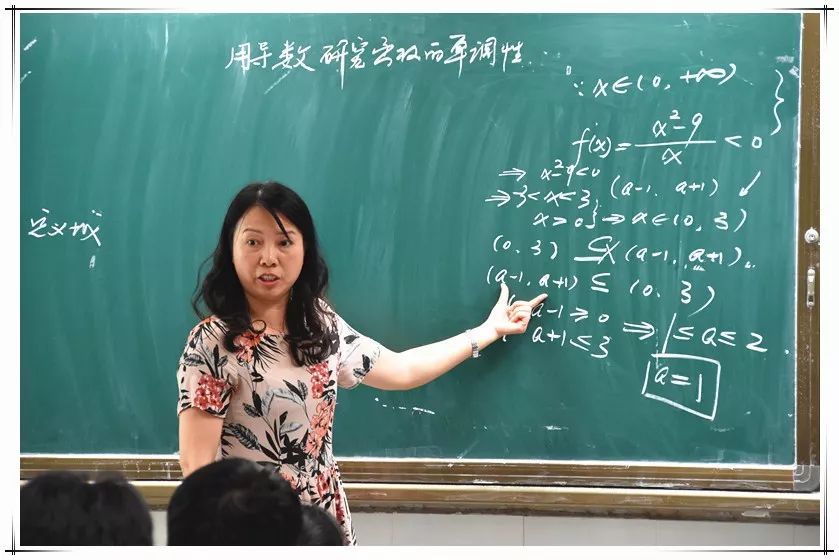 用导数研究函数的单调性
∵ x∈(0, +∞)
f(x)= x²-9/x <0
⇒ x²-9<0
⇒ -3<x<3, (a-1, a+1) ✓
x>0} ⇒ x∈(0, 3)
定义域
(0, 3) ⊆ (a-1, a+1)
(a-1, a+1) ⊆ (0, 3)
a-1≥0
a+1≤3 ⇒ 1≤a≤2.
a=1